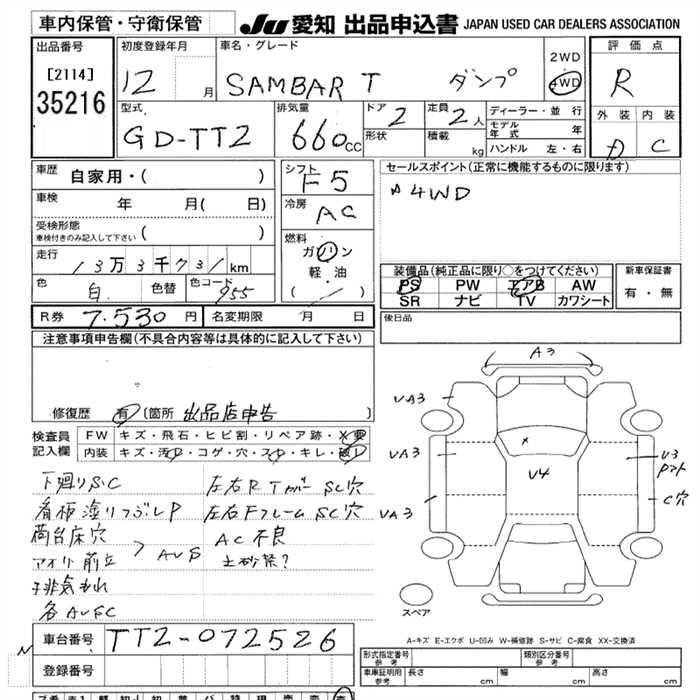 車内保管・守衛保管
JU 愛知 出品申込書 JAPAN USED CAR DEALERS ASSOCIATION
出品番号
[2114]
35216
初度登録年月
12 月
車名・グレード
SAMBAR T ダンプ
2WD
4WD
評価点
R
外装 内装
D C
型式
GD-TT2
排気量
660 CC
ドア 2
形状
定員 2 人
積載 kg
ディーラー・並行
モデル年式 年
ハンドル 左・右
車歴 自家用・( )
車検 年 月( 日)
受検形態
車検付きのみ記入して下さい ( )
走行 13万3千731 km
色 白 色替 色コード 955
シフト F5
冷房 AC
燃料
ガソリン
軽・油
( / )
セールスポイント(正常に機能するものに限ります)
4WD
装備品(純正品に限り○をつけてください)
PS PW エアB AW
SR ナビ TV カワシート
新車保証書
有・無
R券 7.530 円 名変期限 月 日
後日品
注意事項申告欄(不具合内容等は具体的に記入して下さい)
修復歴 有 (箇所 出品店申告 )
検査員記入欄
FW キズ・飛石・ヒビ割・リペア跡・X要
内装 キズ・汚レ・コゲ・穴・スレ・キレ・破レ
下廻りS.C
看板塗りつぶしP
荷台床穴
アオリ前立 > AUS
排気もれ
各AUSC
左右RTカバーSC穴
左右FフレームSC穴
AC不良
土砂禁?
A3
UA3
UA3
UA3
U4
U3
C穴
スペア
A-キズ E-エクボ U-凹み W-補修跡 S-サビ C-腐食 XX-交換済
N
車台番号 TT2-072526
登録番号
形式指定番号 参考
類別区分番号 参考
車庫証明用 参考 長さ cm 幅 cm 高さ cm